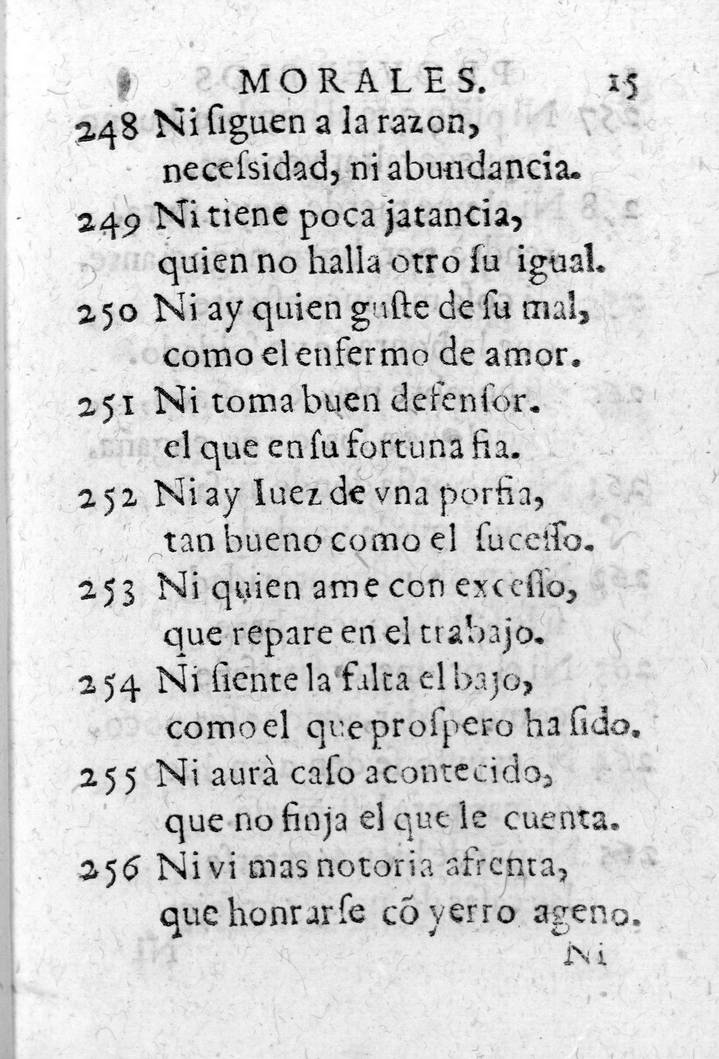 MORALES. 15
248 Ni ſiguen a la razon,
neceſsidad, ni abundancia.
249 Ni tiene poca jatancia,
quien no halla otro ſu igual.
250 Ni ay quien guſte de ſu mal,
como el enfermo de amor.
251 Ni toma buen defenſor.
el que en ſu fortuna fia.
252 Ni ay Iuez de vna porfia,
tan bueno como el ſuceſſo.
253 Ni quien ame con exceſſo,
que repare en el trabajo.
254 Ni ſiente la falta el bajo,
como el que proſpero ha ſido.
255 Ni aurà caſo acontecido,
que no finja el que le cuenta.
256 Ni vi mas notoria afrenta,
que honrarſe cõ yerro ageno.
Ni